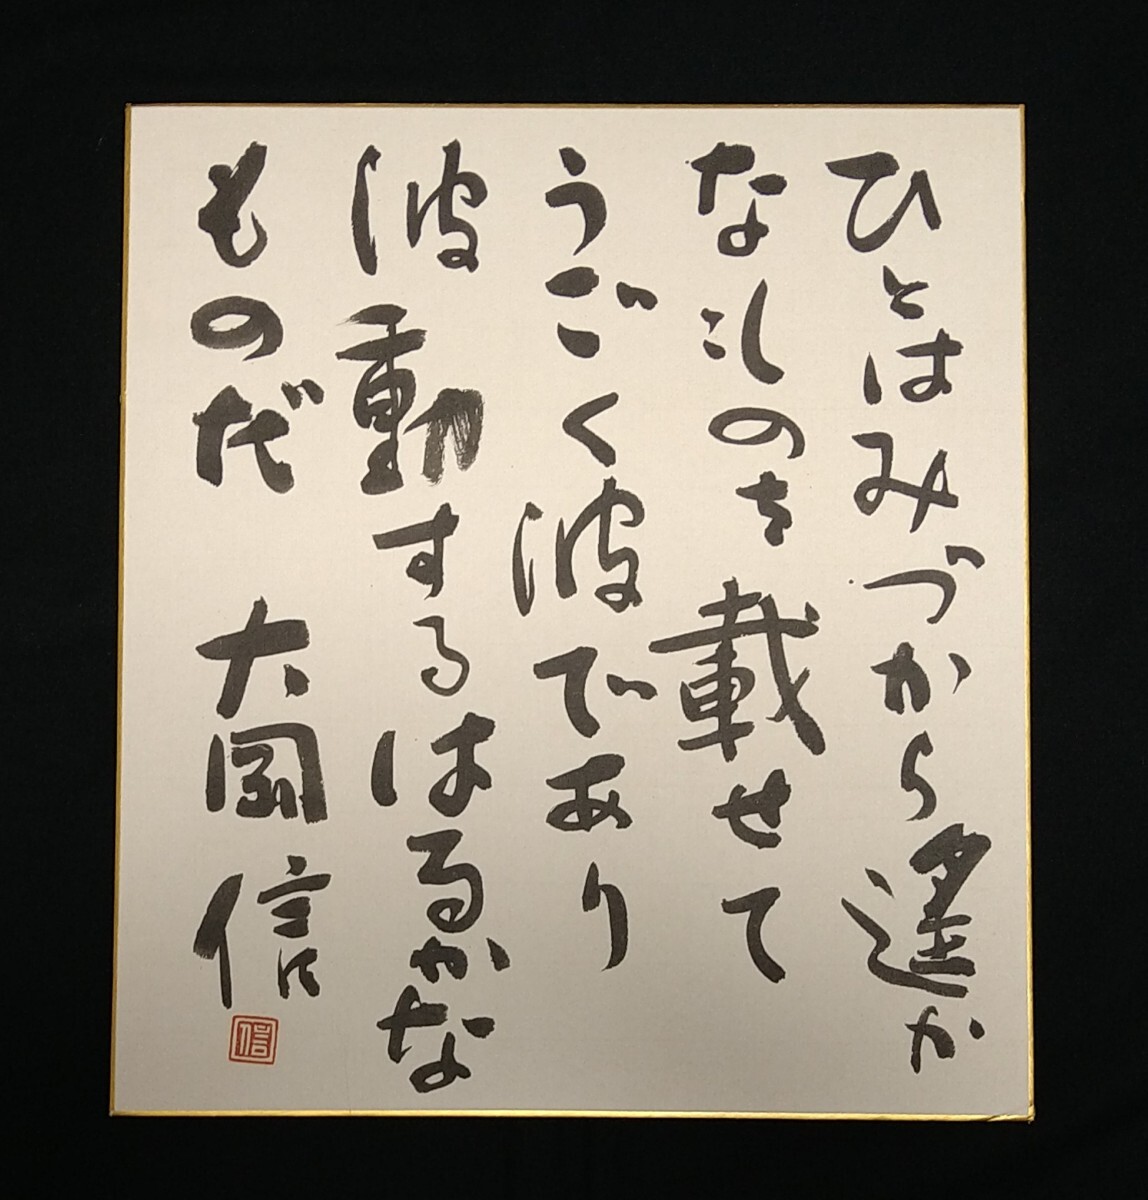 ひとはみづから遙か
なものを載せて
うごく波であり
波動するはるかな
ものだ 大岡信
信